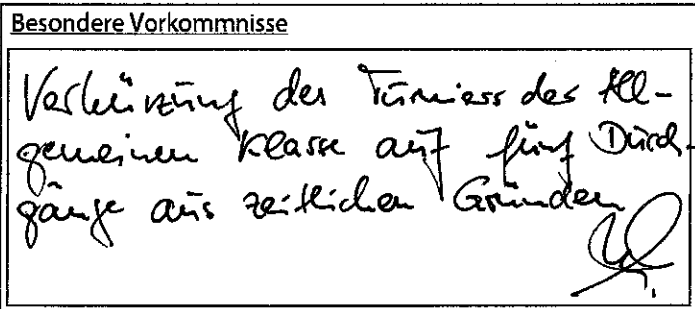 Besondere Vorkommnisse
Verkürzung des Turniers der All-
gemeinen Klasse auf fünf Durch-
gänge aus zeitlichen Gründen